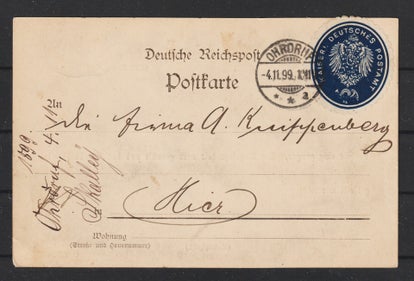 Deutsche Reichspost
Postkarte
OHRDRUF
4.11.99.
a
KAISERL. DEUTSCHES POSTAMT
An
die Firma A. Knippenberg
Hier
Wohnung
(Straße und Hausnummer)
Ohrdruf, 4. 11
1899